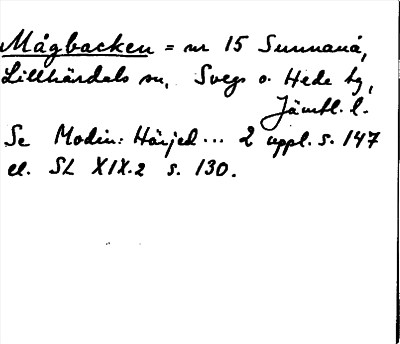 Mågbacken = nr 15 Sunnanå,
Lillhärdals sn, Svegs o. Hede tg,
Jämtl. l.
Se Modin: Härjed... 2 uppl. s. 147
el. SL XIX.2 s. 130.